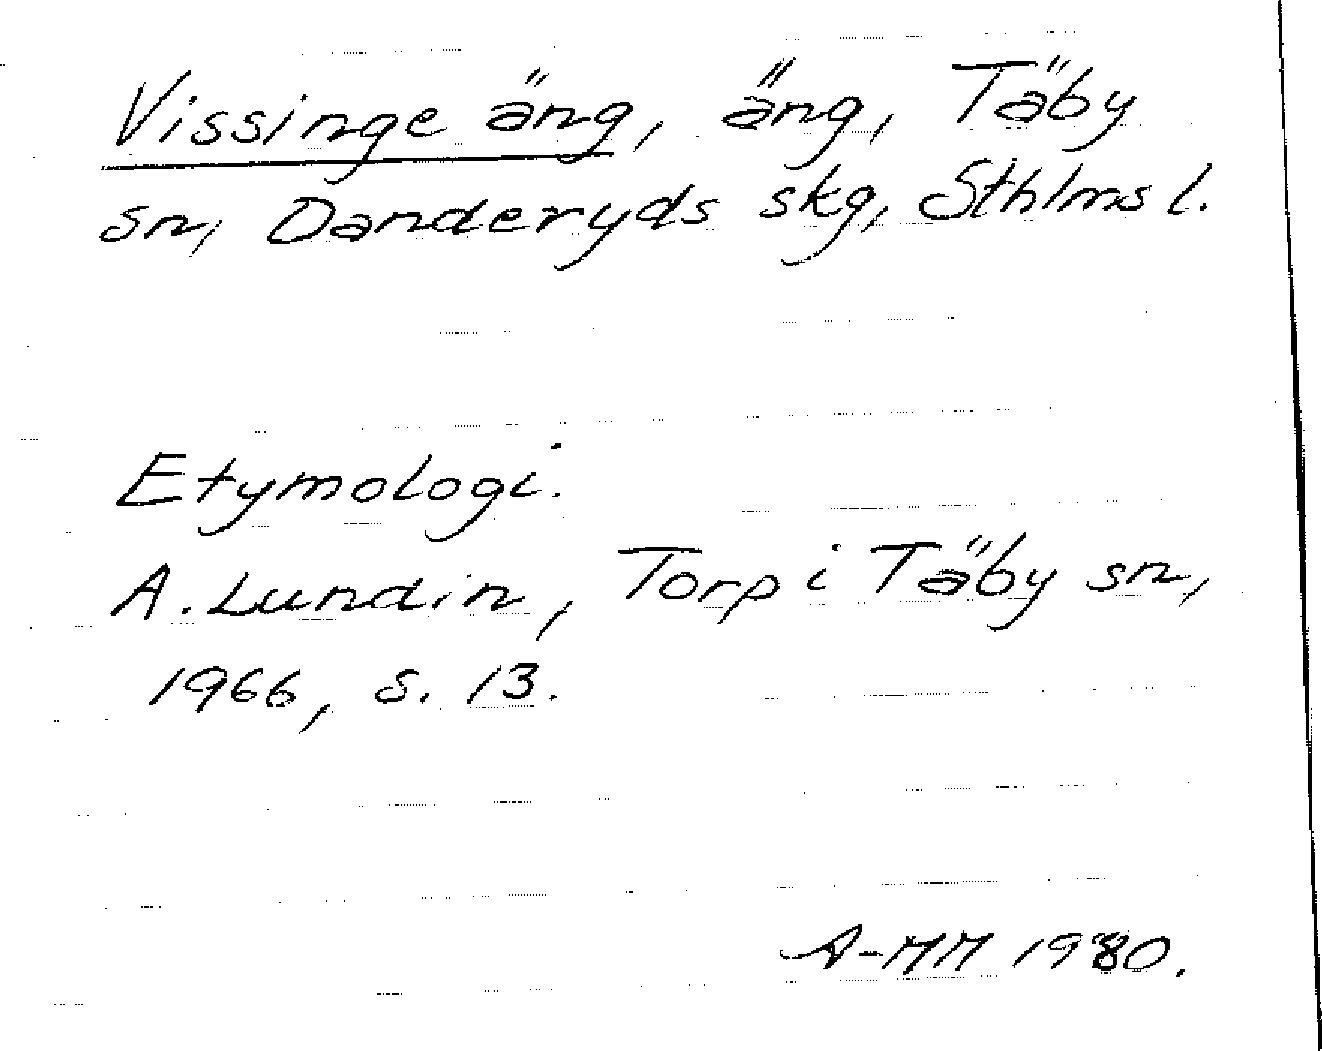 Vissinge äng, äng, Täby
sn, Danderyds skg, Sthlms l.
Etymologi.
A. Lundin, Torp i Täby sn,
1966, s. 13.
A-MM 1980.